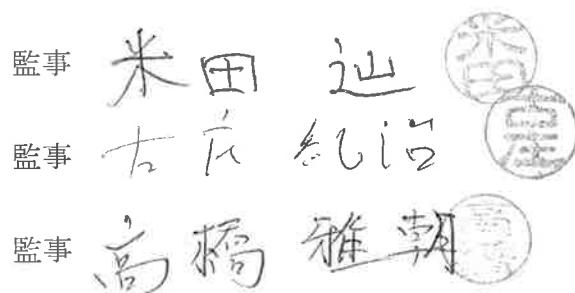 監事 米田 辿 米田
監事 古庄 紀治
監事 高橋 雅朝